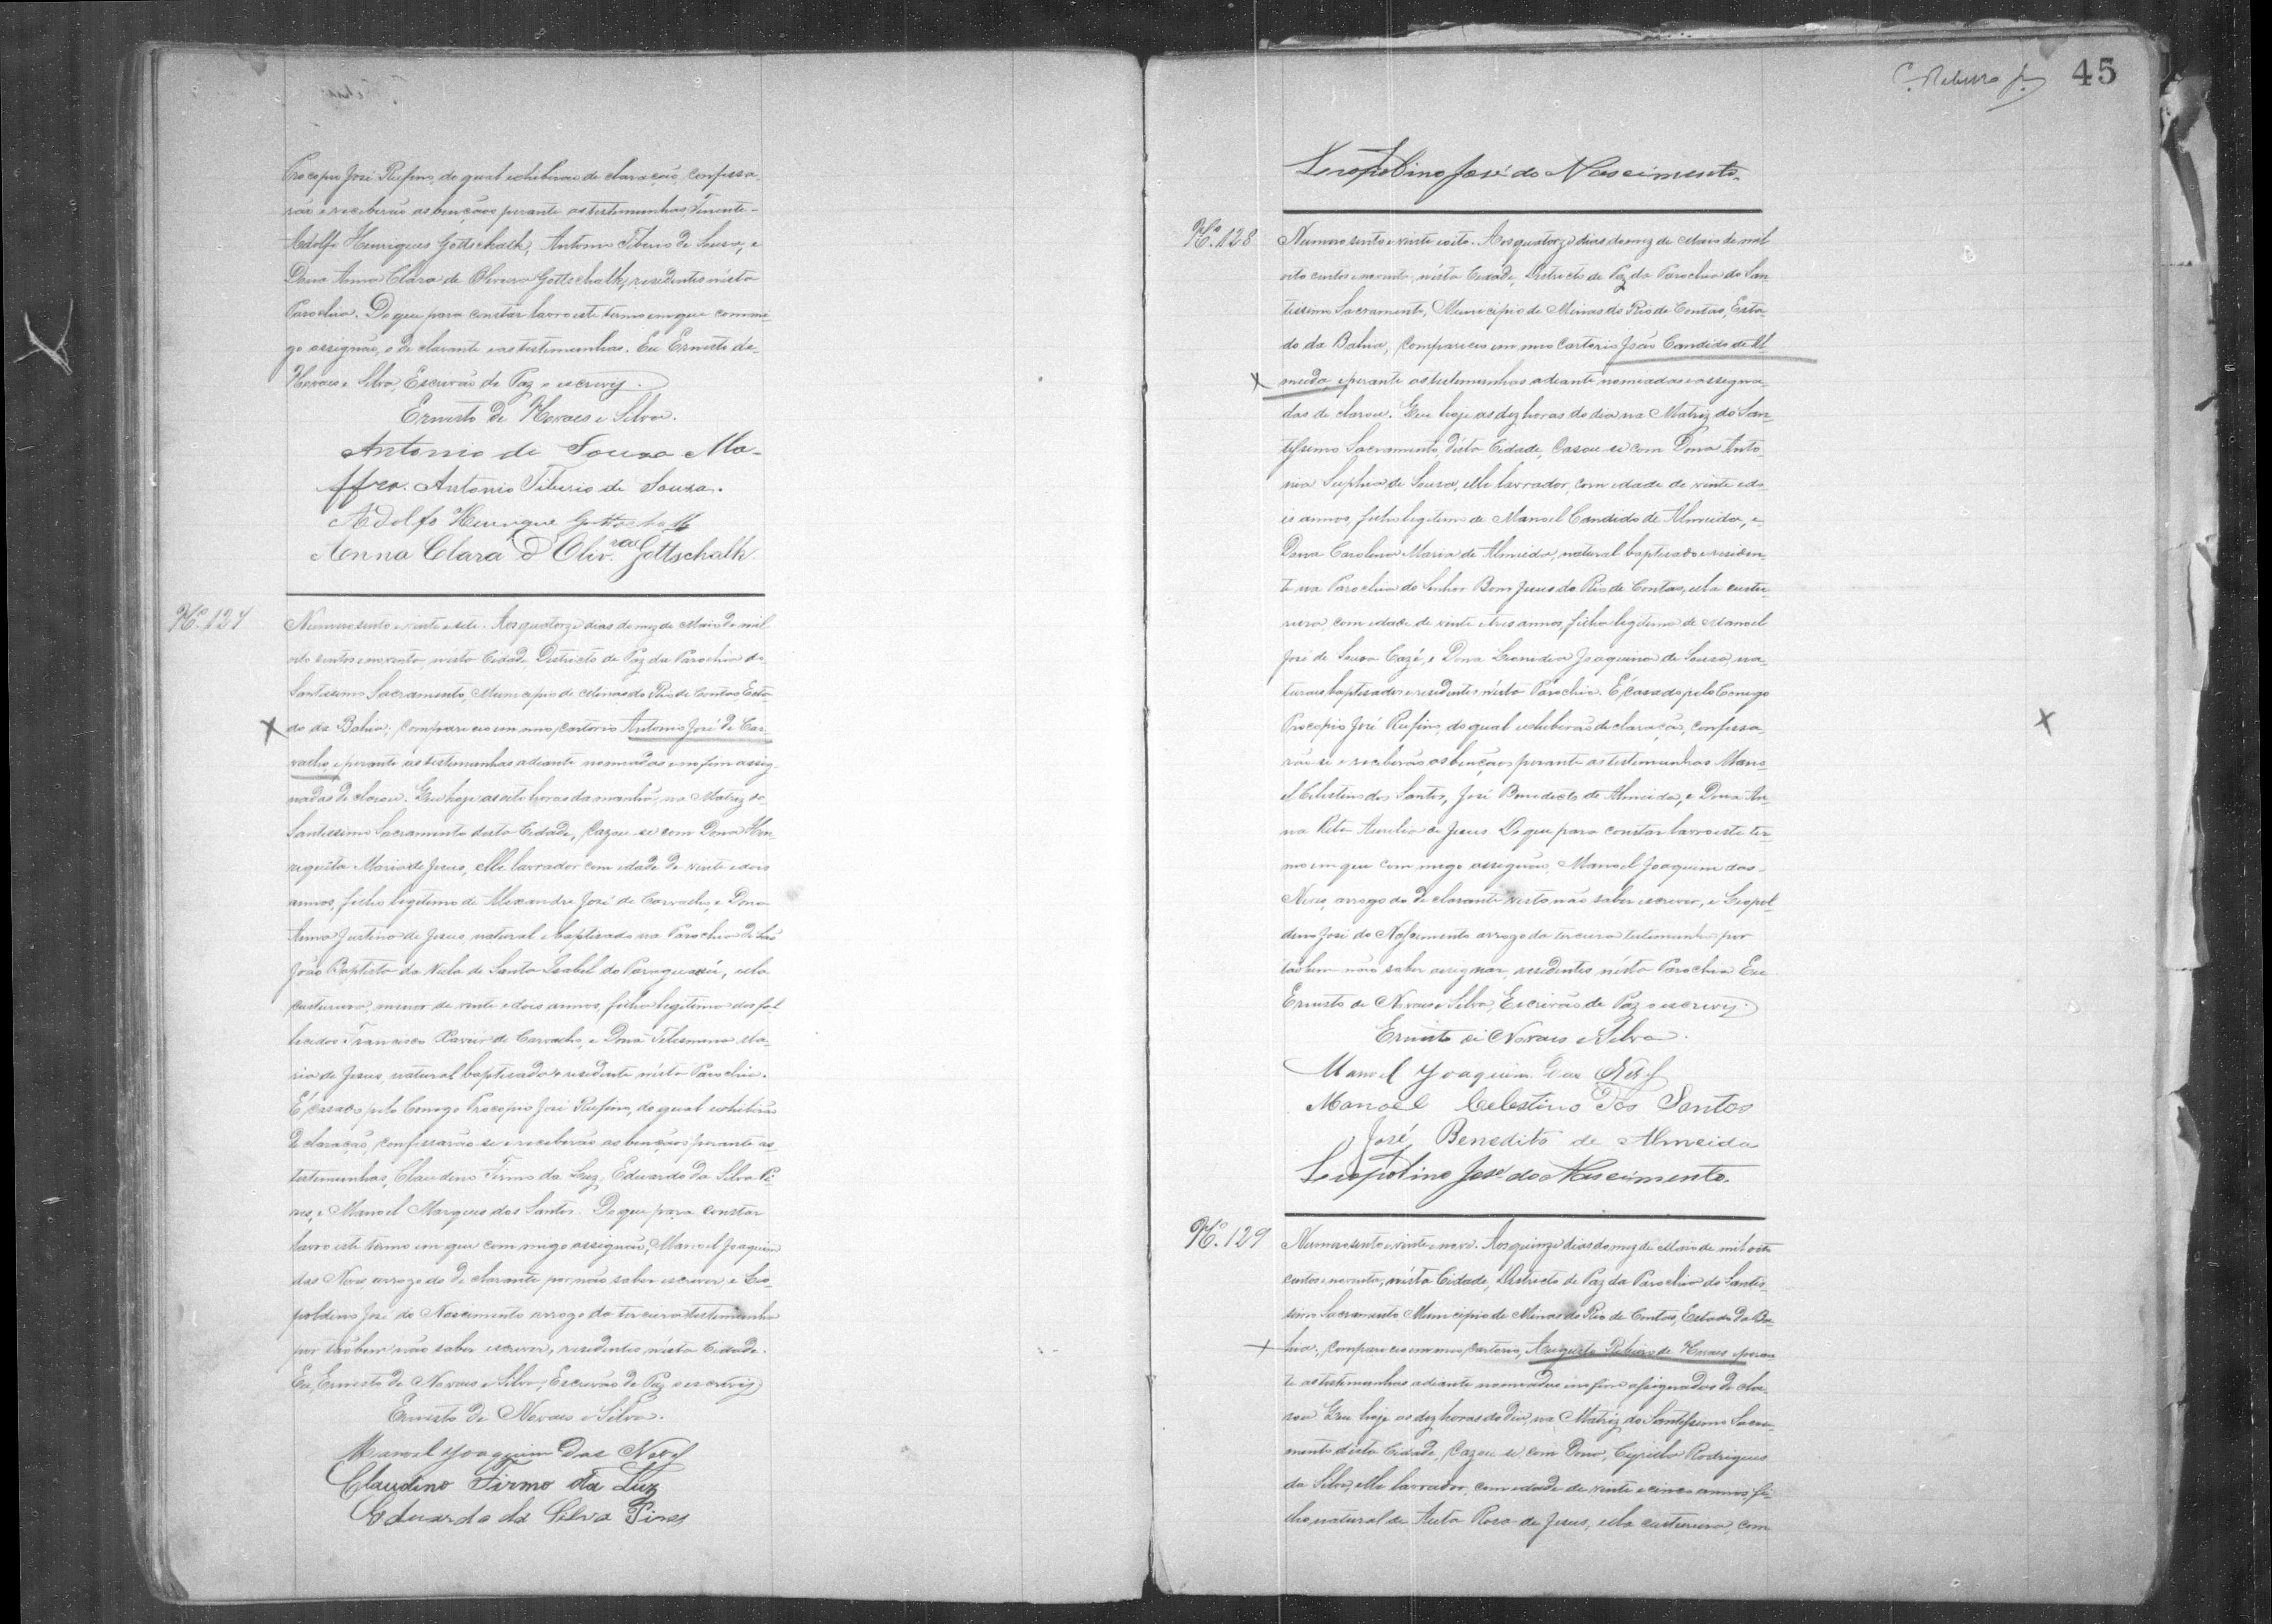 Procopio José Rufino, do qual exhibirão declaração, confessa-
rão e receberão as bençãos perante as testimunhas Tenente
Adolfo Henriques Gottschalk, Antonio Tiberio de Sousa, e
Dona Anna Clara de Oliveira Gottschalk, residentes nésta
Parochia. Do que para constar lavro este termo em que commi-
go assignão, o declarante e as testimunhas. Eu Ernesto de
Novaes e Silva, Escrivão de Paz o escrevij.
Ernesto de Novaes e Silva.
Antonio de Souza Ma-
ffra. Antonio Tiberio de Souza.
Adolfo Henrique Gottschalk
Anna Clara d'Oliv.ra Gottschalk
Nº. 127
Numero sento e vinte e sete. Aos quatorze dias do mez de Maio de mil
oito centos e noventa, nesta Cidade, Districto de Paz da Parochia do
Santissimo Sacramento, Municipio de Minas do Rio de Contas Esta-
do da Bahia; compareceu em meu Cartorio Antonio José de Car-
valho, e perante as testimunhas adiante nomeadas e no fim assig-
nadas declarou. Que hoje as oito horas da manhã, na Matriz do
Santissimo Sacramento desta Cidade, Cazou-se com Dona Hen-
riqueta Maria de Jesus, elle lavrador com idade de vinte e dois
annos, filho legitimo de Alexandre José de Carvalho, e Dona
Anna Justina de Jesus, natural e baptisado na Parochia de São
João Baptista da Villa de Santa Isabel do Paraguassú, ella
custureira, menor de vinte e dois annos, filha legitima dos fal-
lecidos Francisco Xavier de Carvalho, e Dona Felismina Ma-
ria de Jesus, natural baptisada e residente nésta Parochia.
É casado pelo Conego Procopio José Rufino, do qual exhibirão
declaração, confessarão-se e receberão as bençãos perante as
testimunhas, Claudino Firmo da Luz, Eduardo da Silva Pi-
res, e Manoel Marques dos Santos. Do que para constar
lavro este termo em que com migo assignão, Manoel Joaquim
das Neves, arrogo do declarante por não saber escrever e Leo-
poldino José do Nascimento arrogo da terceira testimunha
por tãobem não saber escrever, residentes nésta Cidade.
Eu, Ernesto de Novaes e Silva, Escrivão de Paz o escrevij
Ernesto de Novaes e Silva.
Manoel Joaquim das Neves
Claudino Firmo da Luz
Eduardo da Silva Pires
45
Leopoldino José do Nascimento.
Nº. 128
Numero sento e vinte e oito. Aos quatorze dias do mez de Maio de mil
oito centos e noventa, nésta Cidade, Districto de Paz da Parochia do San-
tissimo Sacramento, Municipio de Minas do Rio de Contas, Esta-
do da Bahia, compareceu em meu Cartorio João Candido de Al-
meida, e perante as testimunhas adiante nomeadas e assigna-
das declarou. Que hoje as dez horas do dia na Matriz do San-
tissimo Sacramento, desta Cidade, Casou-se com Dona Anto-
nia Sophia de Sousa, elle lavrador, com idade de vinte e do-
is annos, filho legitimo de Manoel Candido de Almeida, e
Dona Carolina Maria de Almeida, natural baptisado e residen-
te na Parochia do Senhor Bom Jesus do Rio de Contas, ella custu-
reira, com idade de vinte e tres annos, filha legitima de Manoel
José de Sousa Cazé, e Dona Leonidia Joaquina de Sousa, na-
turaes baptisados e residentes nésta Parochia. É casado pelo Conego
Procopio José Rufino, do qual exhiberão declaração, confessa-
rão-se e receberão as bençãos perante as testimunhas Mano-
el Celestino dos Santos, José Benedicto de Almeida, e Dona An-
na Rita Aurelia de Jesus. Do que para constar lavro este ter-
mo em que com migo assignão, Manoel Joaquim das
Neves, arrogo do declarante visto não saber escrever, e Leopol-
dino José do Nascimento arrogo da terceira testimunha por
tãobem não saber assignar, residentes nésta Parochia. Eu
Ernesto de Novaes e Silva, Escrivão de Paz o escrevij.
Ernesto de Novaes e Silva.
Manoel Joaquim das Neves
Manoel Celestino dos Santos
José Benedito de Almeida
Leopoldino José do Nascimento.
Nº. 129
Numero sento e vinte e nove. Aos quinze dias do mez de Maio de mil oito
centos e noventa, nésta Cidade, Districto de Paz da Parochia do Santis-
simo Sacramento Municipio de Minas do Rio de Contas, Estado da Ba-
hia; compareceu em meu Cartorio, Augusto Ribeiro de Novaes e peran-
te as testimunhas adiante nomeadas e no fim assignadas decla-
rou. Que hoje as dez horas do dia, na Matriz do Santissimo Sacra-
mento desta Cidade, Cazou-se com Dona, Rodrigues
da Silva, elle lavrador, com idade de vinte e cinco annos, fi-
lho natural de Auta Rosa de Jesus, ella custureira, com